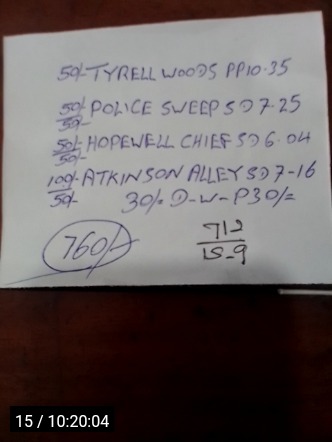 50/- TYRELL WOODS PP10.35
50/- POLICE SWEEP SD7.25
50/-
50/- HOPEWELL CHIEF SD6.04
50/-
100/- ATKINSON ALLEY SD7-16
50/- 30/= D-W-P30/=
760/-
712
15-9
15 / 10:20:04